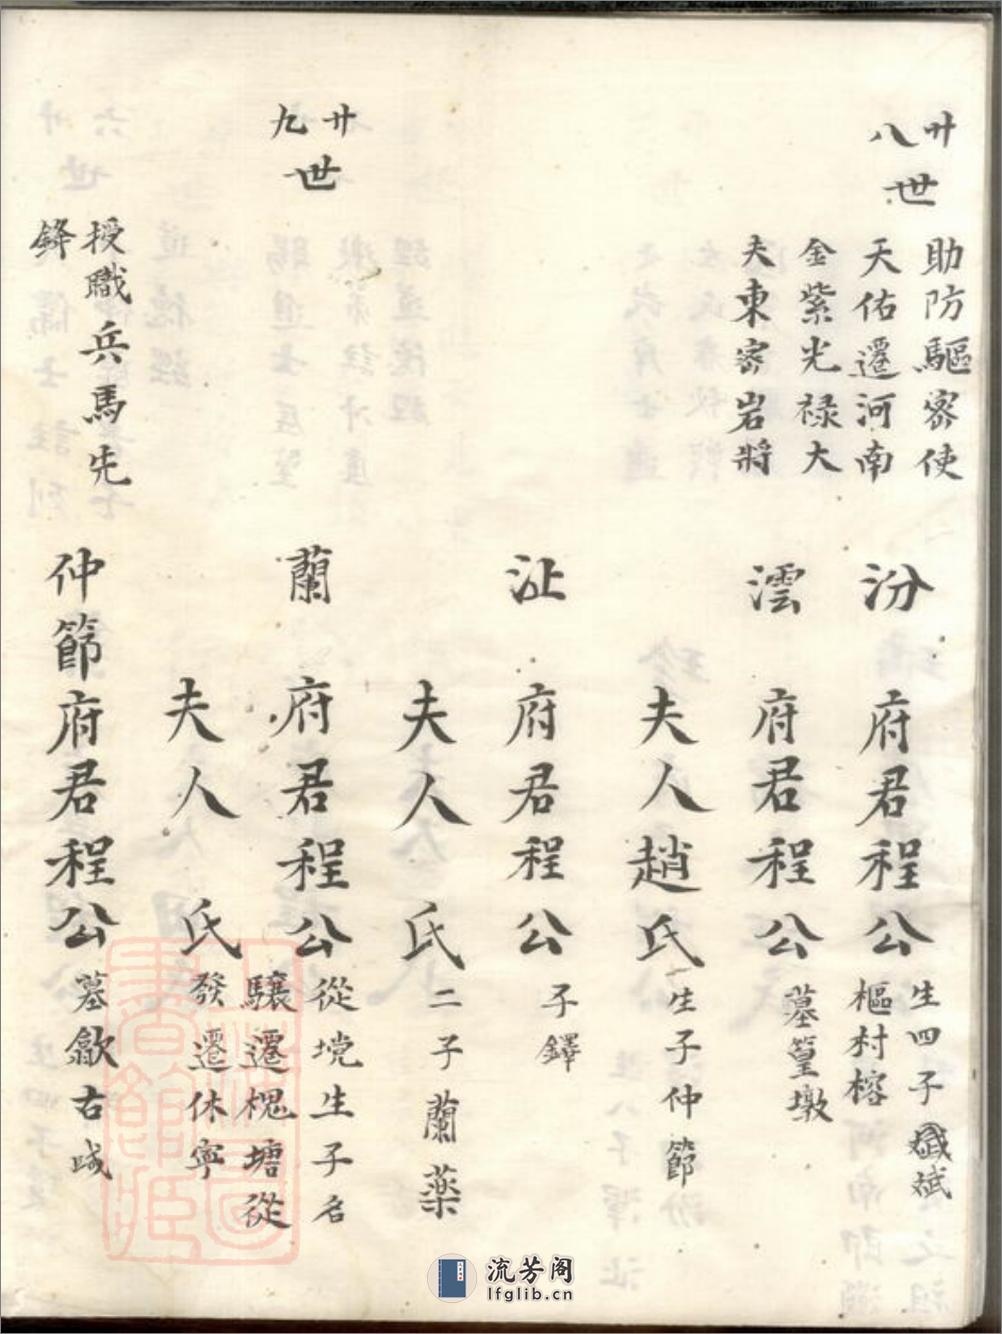 廿八世
助防驅密使
天佑遷河南
金紫光禄大
夫東密岩將
汾 府君程公
生四子斌
樞村榕
澐 府君程公
墓篁墩
夫人趙氏
生子仲節
沚 府君程公
子鐸
夫人 氏
二子蘭藥
廿九世
蘭 府君程公
從㙟生子名
驤遷槐塘從
夫人 氏
發遷休寧
授職兵馬先
鋒
仲節府君程公
墓歙古城
流芳阁
lfglib.cn